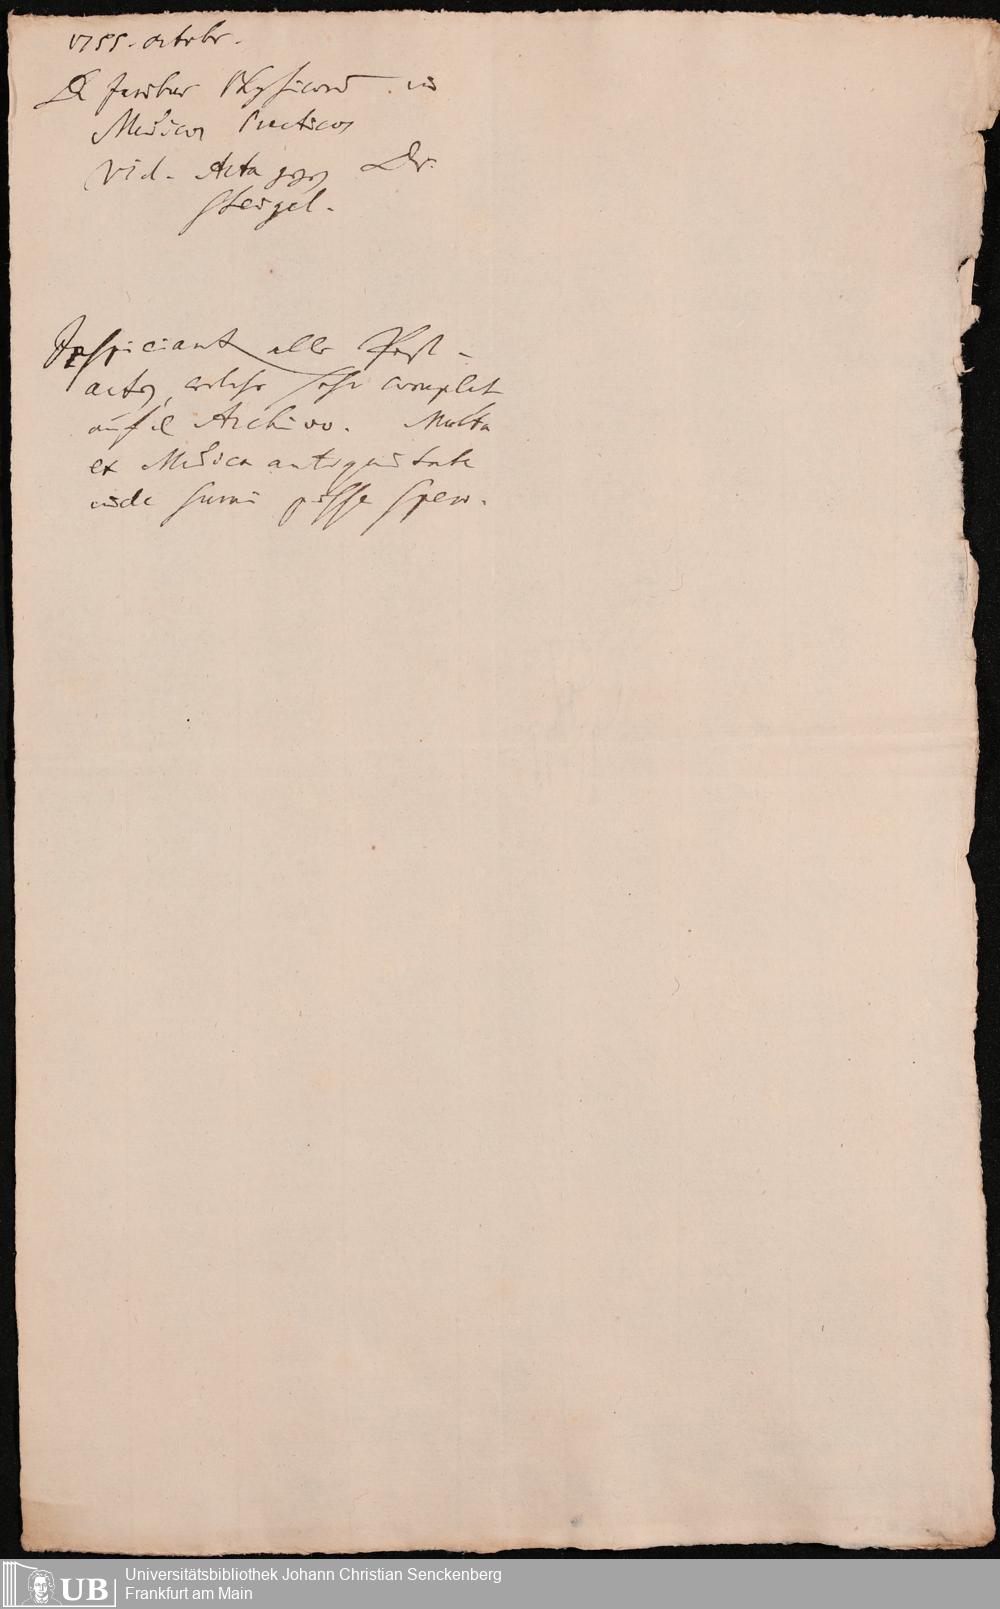 1755. octobr.
De juribus Physicorum in
Medicos Practicos
vid. Acta Dr.
Steigel.
Inspiciant. alle Pest-
acta, welche sehr complet
auf Archivo. Multa
ex Medica antiquitate
inde sumi posse spero.
UB
Universitätsbibliothek Johann Christian Senckenberg
Frankfurt am Main